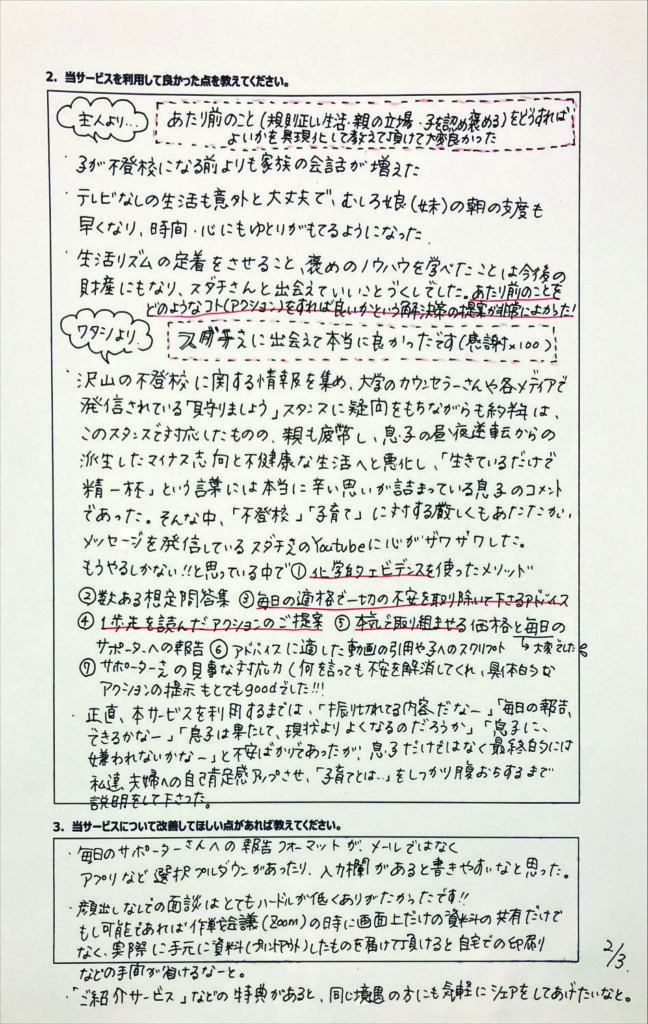 2. 当サービスを利用して良かった点を教えてください。
主人より…
あたり前のこと(規則正しい生活・親の立場・子を認め褒める)をどうすれば
よいかを具現化して教えて頂けて大変良かった
・子が不登校になる前よりも家族の会話が増えた
・テレビなしの生活も意外と大丈夫で、むしろ娘(妹)の朝の支度も
早くなり、時間・心にもゆとりがもてるようになった
・生活リズムの定着をさせること、褒めのノウハウを学べたことは今後の
財産にもなり、スダチさんと出会えていいことづくしでした。あたり前のことを
どのようなコト(アクション)をすれば良いかという解決策の提案が非常によかった!
ワタシより…
スダチさんに出会えて本当に良かったです(感謝×100)
・沢山の不登校に関する情報を集め、大学のカウンセラーさんや各メディアで
発信されている「見守りましょう」スタンスに疑問をもちながらも約半年は、
このスタンスで対応したものの、親も疲弊し、息子の昼夜逆転からの
派生したマイナス志向と不健康な生活へと悪化し、「生きているだけで
精一杯」という言葉には本当に辛い思いが詰まっている息子のコメント
であった。そんな中、「不登校」「子育て」に対する厳しくもあたたかい
メッセージを発信しているスダチさんのYoutubeに心がザワザワした。
もうやるしかない!!と思っている中で①化学的エビデンスを使ったメソッド
②数ある想定問答集 ③毎日の適格で一切の不安を取り除いて下さるアドバイス
④1歩先を読んだアクションのご提案 ⑤本気で取り組ませる価格と毎日の
サポーターへの報告 ⑥アドバイスに適した動画の引用や子へのスクリプト ↳大変でした
⑦サポーターさんの見事な対応力(何を言っても不安を解消してくれ、具体的な
アクションの提示もとてもgoodでした!!!
・正直、本サービスを利用するまでは、「振り切れてる内容だなー」「毎日の報告、
できるかなー」「息子は果たして、現状よりよくなるのだろうか」「息子に、
嫌われないかなー」と不安ばかりであったが、息子だけではなく最終的には
私達夫婦への自己肯定感アップさせ、「子育てとは…」をしっかり腹おちするまで
説明をして下さった。
3. 当サービスについて改善してほしい点があれば教えてください。
・毎日のサポーターさんへの報告フォーマットが、メールではなく
アプリなど選択プルダウンがあったり、入力欄があると書きやすいなと思った。
・顔出しなしでの面談はとてもハードルが低くありがたかったです!!
もし可能であれば作戦会議(Zoom)の時に画面上だけの資料の共有だけで
なく、実際に手元に資料(プリントアウト)したものを届けて頂けると自宅での印刷
などの手間が省けるなーと。
・「ご紹介サービス」などの特典があると、同じ境遇の方にも気軽にシェアをしてあげたいなと。
2/3.